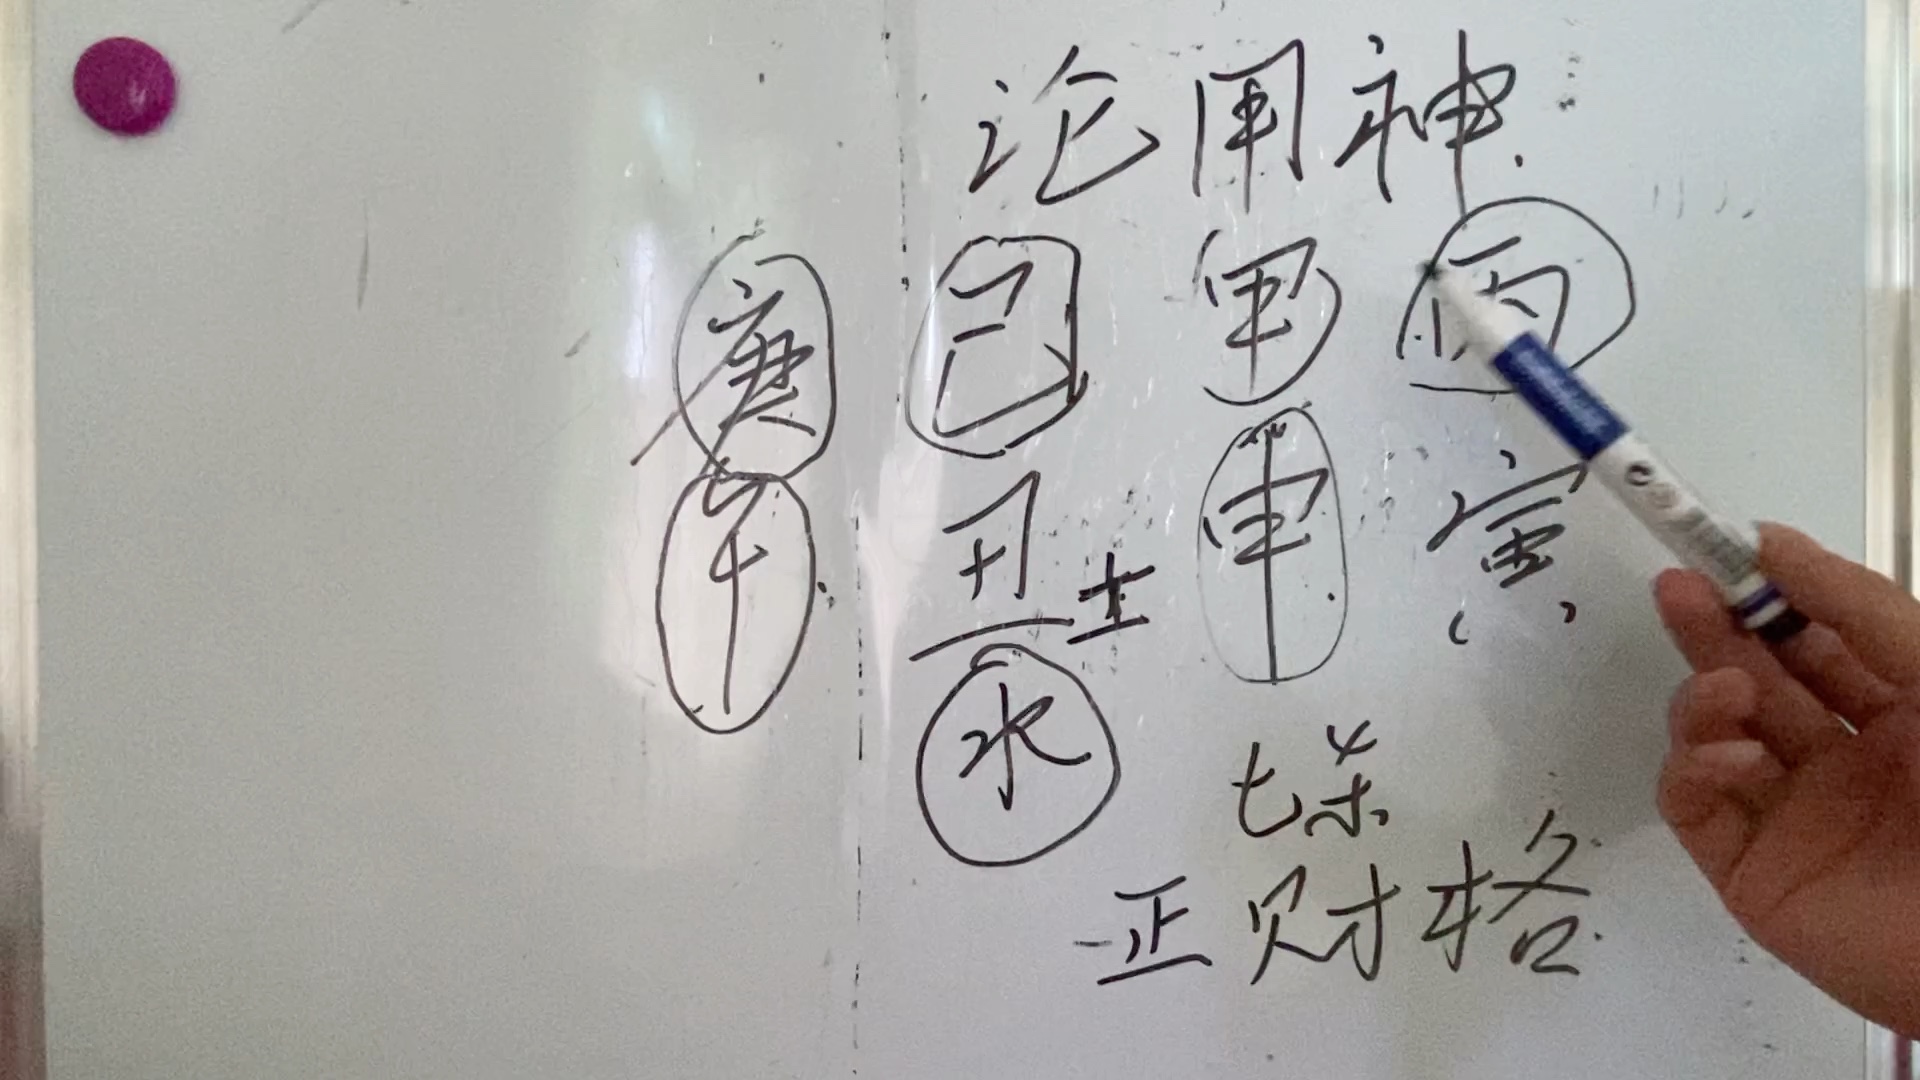 论用神
庚己甲丙
午丑申寅
土
水
七杀
正财格